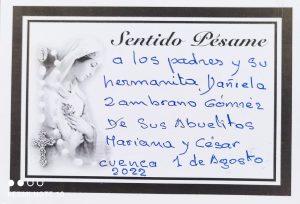 Sentido Pésame
a los padres y su
hermanita Dañiela
Zambrano Gómnez
De Sus Abuelitos
Mariana y César
cuenca 1 de Agosto
2022